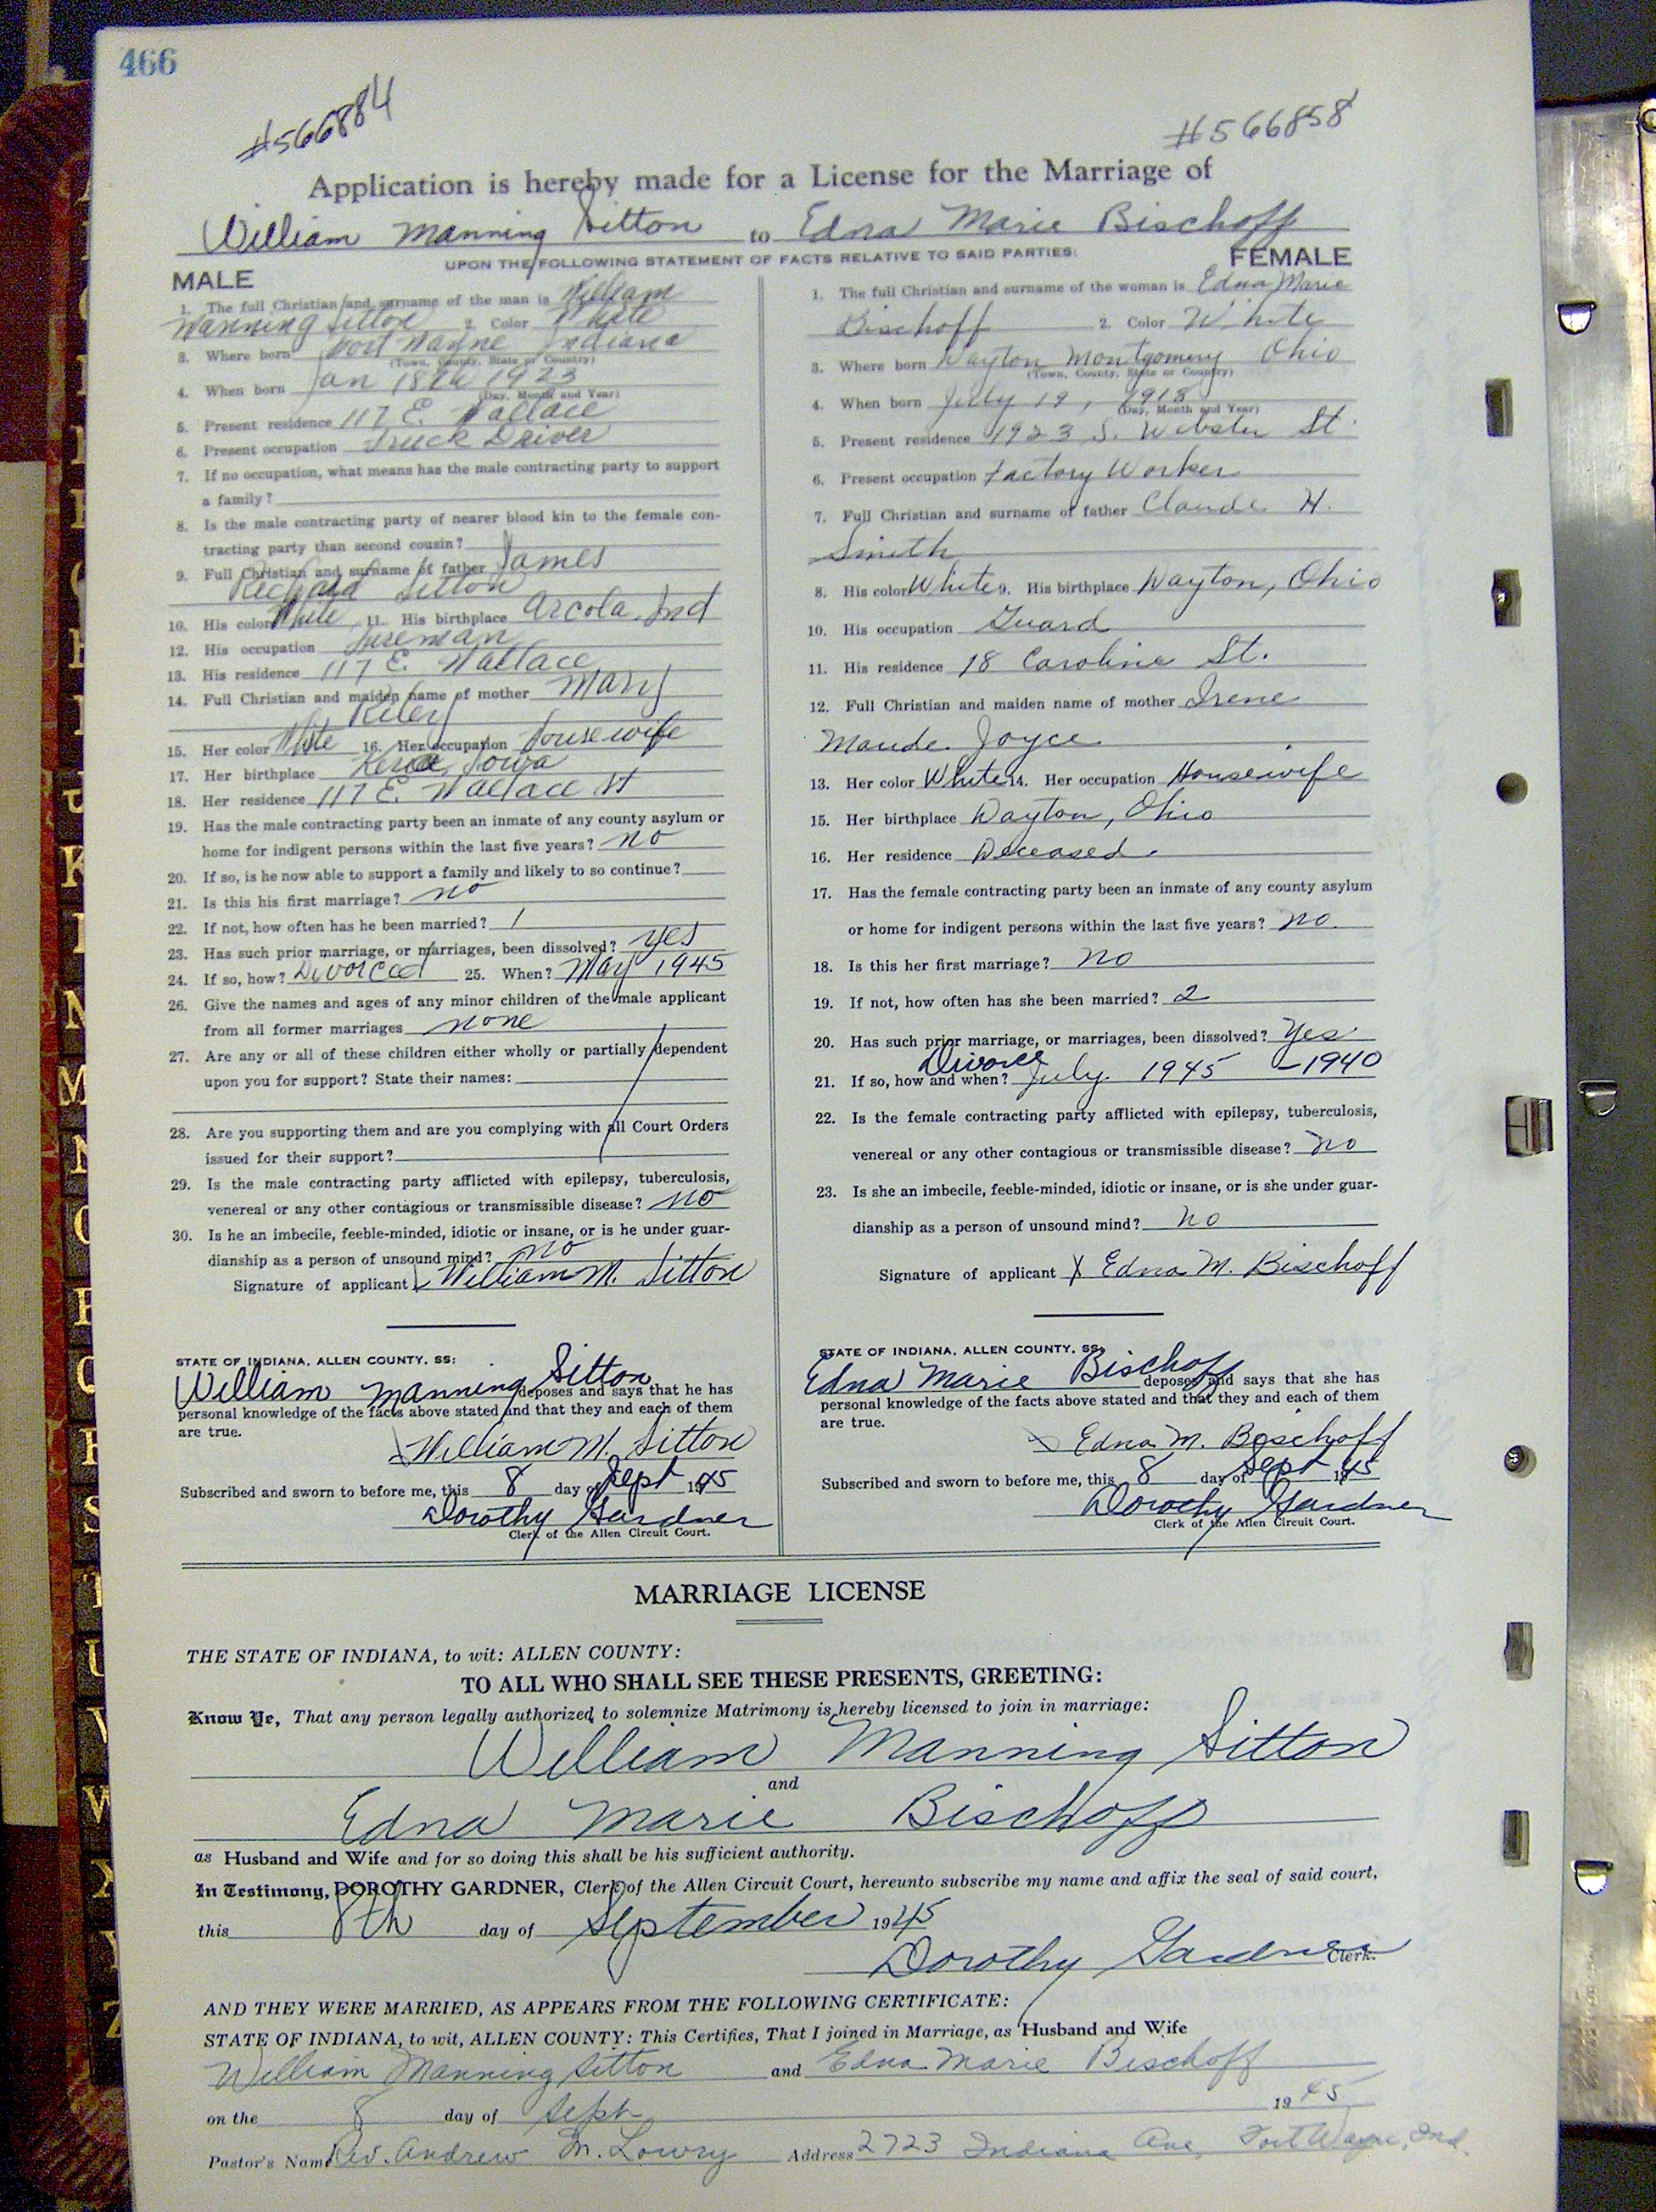 466
#566884
#566858
Application is hereby made for a License for the Marriage of
William Manning Sitton to Edna Marie Bischoff
UPON THE FOLLOWING STATEMENT OF FACTS RELATIVE TO SAID PARTIES:
MALE
1. The full Christian and surname of the man is William
Manning Sitton 2. Color White
3. Where born Fort Wayne Indiana
(Town, County, State or Country)
4. When born Jan 18th 1923
(Day, Month and Year)
5. Present residence 117 E. Wallace
6. Present occupation Truck Driver
7. If no occupation, what means has the male contracting party to support
a family?
8. Is the male contracting party of nearer blood kin to the female con-
tracting party than second cousin?
9. Full Christian and surname of father James
Richard Sitton
10. His color White 11. His birthplace Arcola, Ind
12. His occupation Fireman
13. His residence 117 E. Wallace
14. Full Christian and maiden name of mother Mary
Riley
15. Her color White 16. Her occupation Housewife
17. Her birthplace Iowa
18. Her residence 117 E. Wallace St
19. Has the male contracting party been an inmate of any county asylum or
home for indigent persons within the last five years? no
20. If so, is he now able to support a family and likely to so continue?
21. Is this his first marriage? no
22. If not, how often has he been married? 1
23. Has such prior marriage, or marriages, been dissolved? yes
24. If so, how? Divorced 25. When? May 1945
26. Give the names and ages of any minor children of the male applicant
from all former marriages none
27. Are any or all of these children either wholly or partially dependent
upon you for support? State their names:
28. Are you supporting them and are you complying with all Court Orders
issued for their support?
29. Is the male contracting party afflicted with epilepsy, tuberculosis,
venereal or any other contagious or transmissible disease? no
30. Is he an imbecile, feeble-minded, idiotic or insane, or is he under guar-
dianship as a person of unsound mind? no
Signature of applicant William M. Sitton
STATE OF INDIANA, ALLEN COUNTY, SS:
William Manning Sitton deposes and says that he has
personal knowledge of the facts above stated and that they and each of them
are true.
x William M. Sitton
Subscribed and sworn to before me, this 8 day of Sept 1945
Dorothy Gardner
Clerk of the Allen Circuit Court.
FEMALE
1. The full Christian and surname of the woman is Edna Marie
Bischoff 2. Color White
3. Where born Dayton Montgomery Ohio
(Town, County, State or Country)
4. When born July 19, 1918
(Day, Month and Year)
5. Present residence 1923 S. Webster St
6. Present occupation Factory Worker
7. Full Christian and surname of father Claude H.
Smith
8. His color White 9. His birthplace Dayton, Ohio
10. His occupation Guard
11. His residence 18 Caroline St.
12. Full Christian and maiden name of mother Irene
Maude Joyce
13. Her color White 14. Her occupation Housewife
15. Her birthplace Dayton, Ohio
16. Her residence Deceased.
17. Has the female contracting party been an inmate of any county asylum
or home for indigent persons within the last five years? no.
18. Is this her first marriage? no
19. If not, how often has she been married? 2
20. Has such prior marriage, or marriages, been dissolved? Yes
Divorce
21. If so, how and when? July 1945 - 1940
22. Is the female contracting party afflicted with epilepsy, tuberculosis,
venereal or any other contagious or transmissible disease? no
23. Is she an imbecile, feeble-minded, idiotic or insane, or is she under guar-
dianship as a person of unsound mind? no
Signature of applicant x Edna M. Bischoff
STATE OF INDIANA, ALLEN COUNTY, SS:
Edna Marie Bischoff deposes and says that she has
personal knowledge of the facts above stated and that they and each of them
are true.
x Edna M. Bischoff
Subscribed and sworn to before me, this 8 day of Sept 1945
Dorothy Gardner
Clerk of the Allen Circuit Court.
MARRIAGE LICENSE
THE STATE OF INDIANA, to wit: ALLEN COUNTY:
TO ALL WHO SHALL SEE THESE PRESENTS, GREETING:
Know Ye, That any person legally authorized to solemnize Matrimony is hereby licensed to join in marriage:
William Manning Sitton
and
Edna Marie Bischoff
as Husband and Wife and for so doing this shall be his sufficient authority.
In Testimony, DOROTHY GARDNER, Clerk of the Allen Circuit Court, hereunto subscribe my name and affix the seal of said court,
this 8th day of September 1945
Dorothy Gardner Clerk.
AND THEY WERE MARRIED, AS APPEARS FROM THE FOLLOWING CERTIFICATE:
STATE OF INDIANA, to wit, ALLEN COUNTY: This Certifies, That I joined in Marriage, as Husband and Wife
William Manning Sitton and Edna Marie Bischoff
on the 8 day of Sept 1945
Pastor's Name Rev. Andrew M. Lowry Address 2723 Indiana Ave, Fort Wayne, Ind.